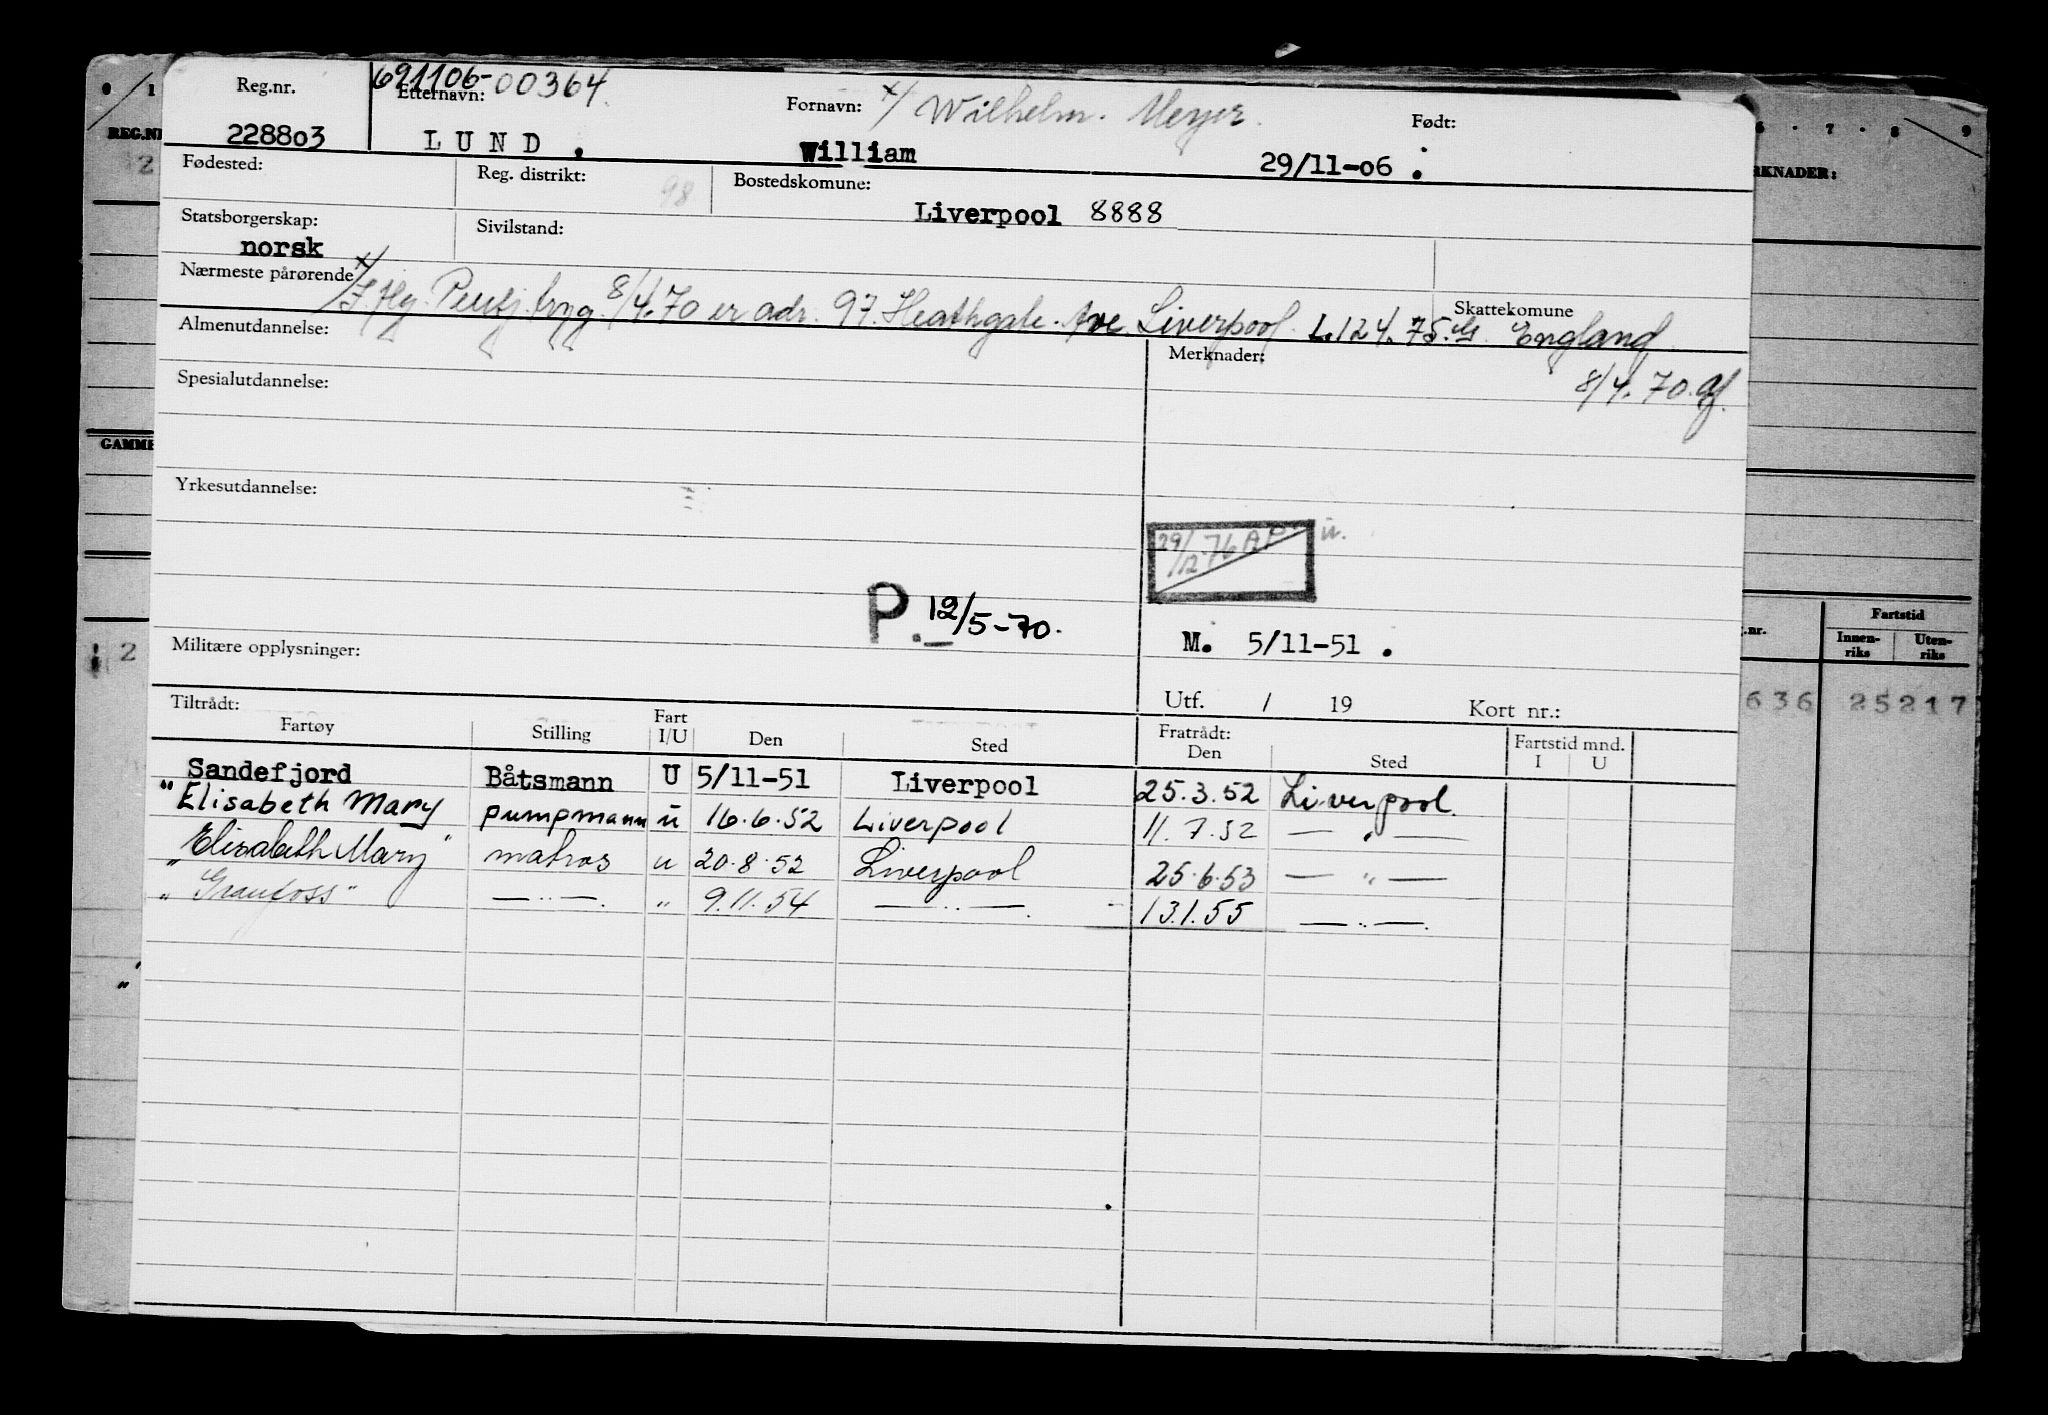 Reg.nr. 691106-00364
Etternavn: Fornavn: x/ Wilhelm. Meyer. Født:
228803 LUND. William 29/11-06.
Fødested: Reg. distrikt: 98 Bostedskomune:
Liverpool 8888
Statsborgerskap: Sivilstand:
norsk
Nærmeste pårørende Skattekomune
x/ 8/4.70 er adr. 97. Heathgate. Ave. Liverpool. L.124.75.G. England
Almenutdannelse: Merknader:
8/4.70.
Spesialutdannelse:
Yrkesutdannelse:
29/12-76 AP ü.
P. 12/5-70.
M. 5/11-51.
Militære opplysninger:
Utf. / 19 Kort nr.:
Tiltrådt: Fratrådt:
Fartøy Stilling Fart I/U Den Sted Den Sted Fartstid mnd. I U
Sandefjord Båtsmann U 5/11-51 Liverpool 25.3.52 Liverpool.
"Elisabeth Mary pumpmann u 16.6.52 Liverpool 11.7.52 — " —
"Elisabeth Mary" matros u 20.8.52 Liverpool 25.6.53 — " —
"Granfoss" — " —. " 9.11.54 — " —. 13.1.55 — " —.
0 1 6 . 7 . 8 9
REG.NR
2
RKNADER:
GAMME
2
g.nr. Fartstid
Innen-riks Uten-riks
636 25217